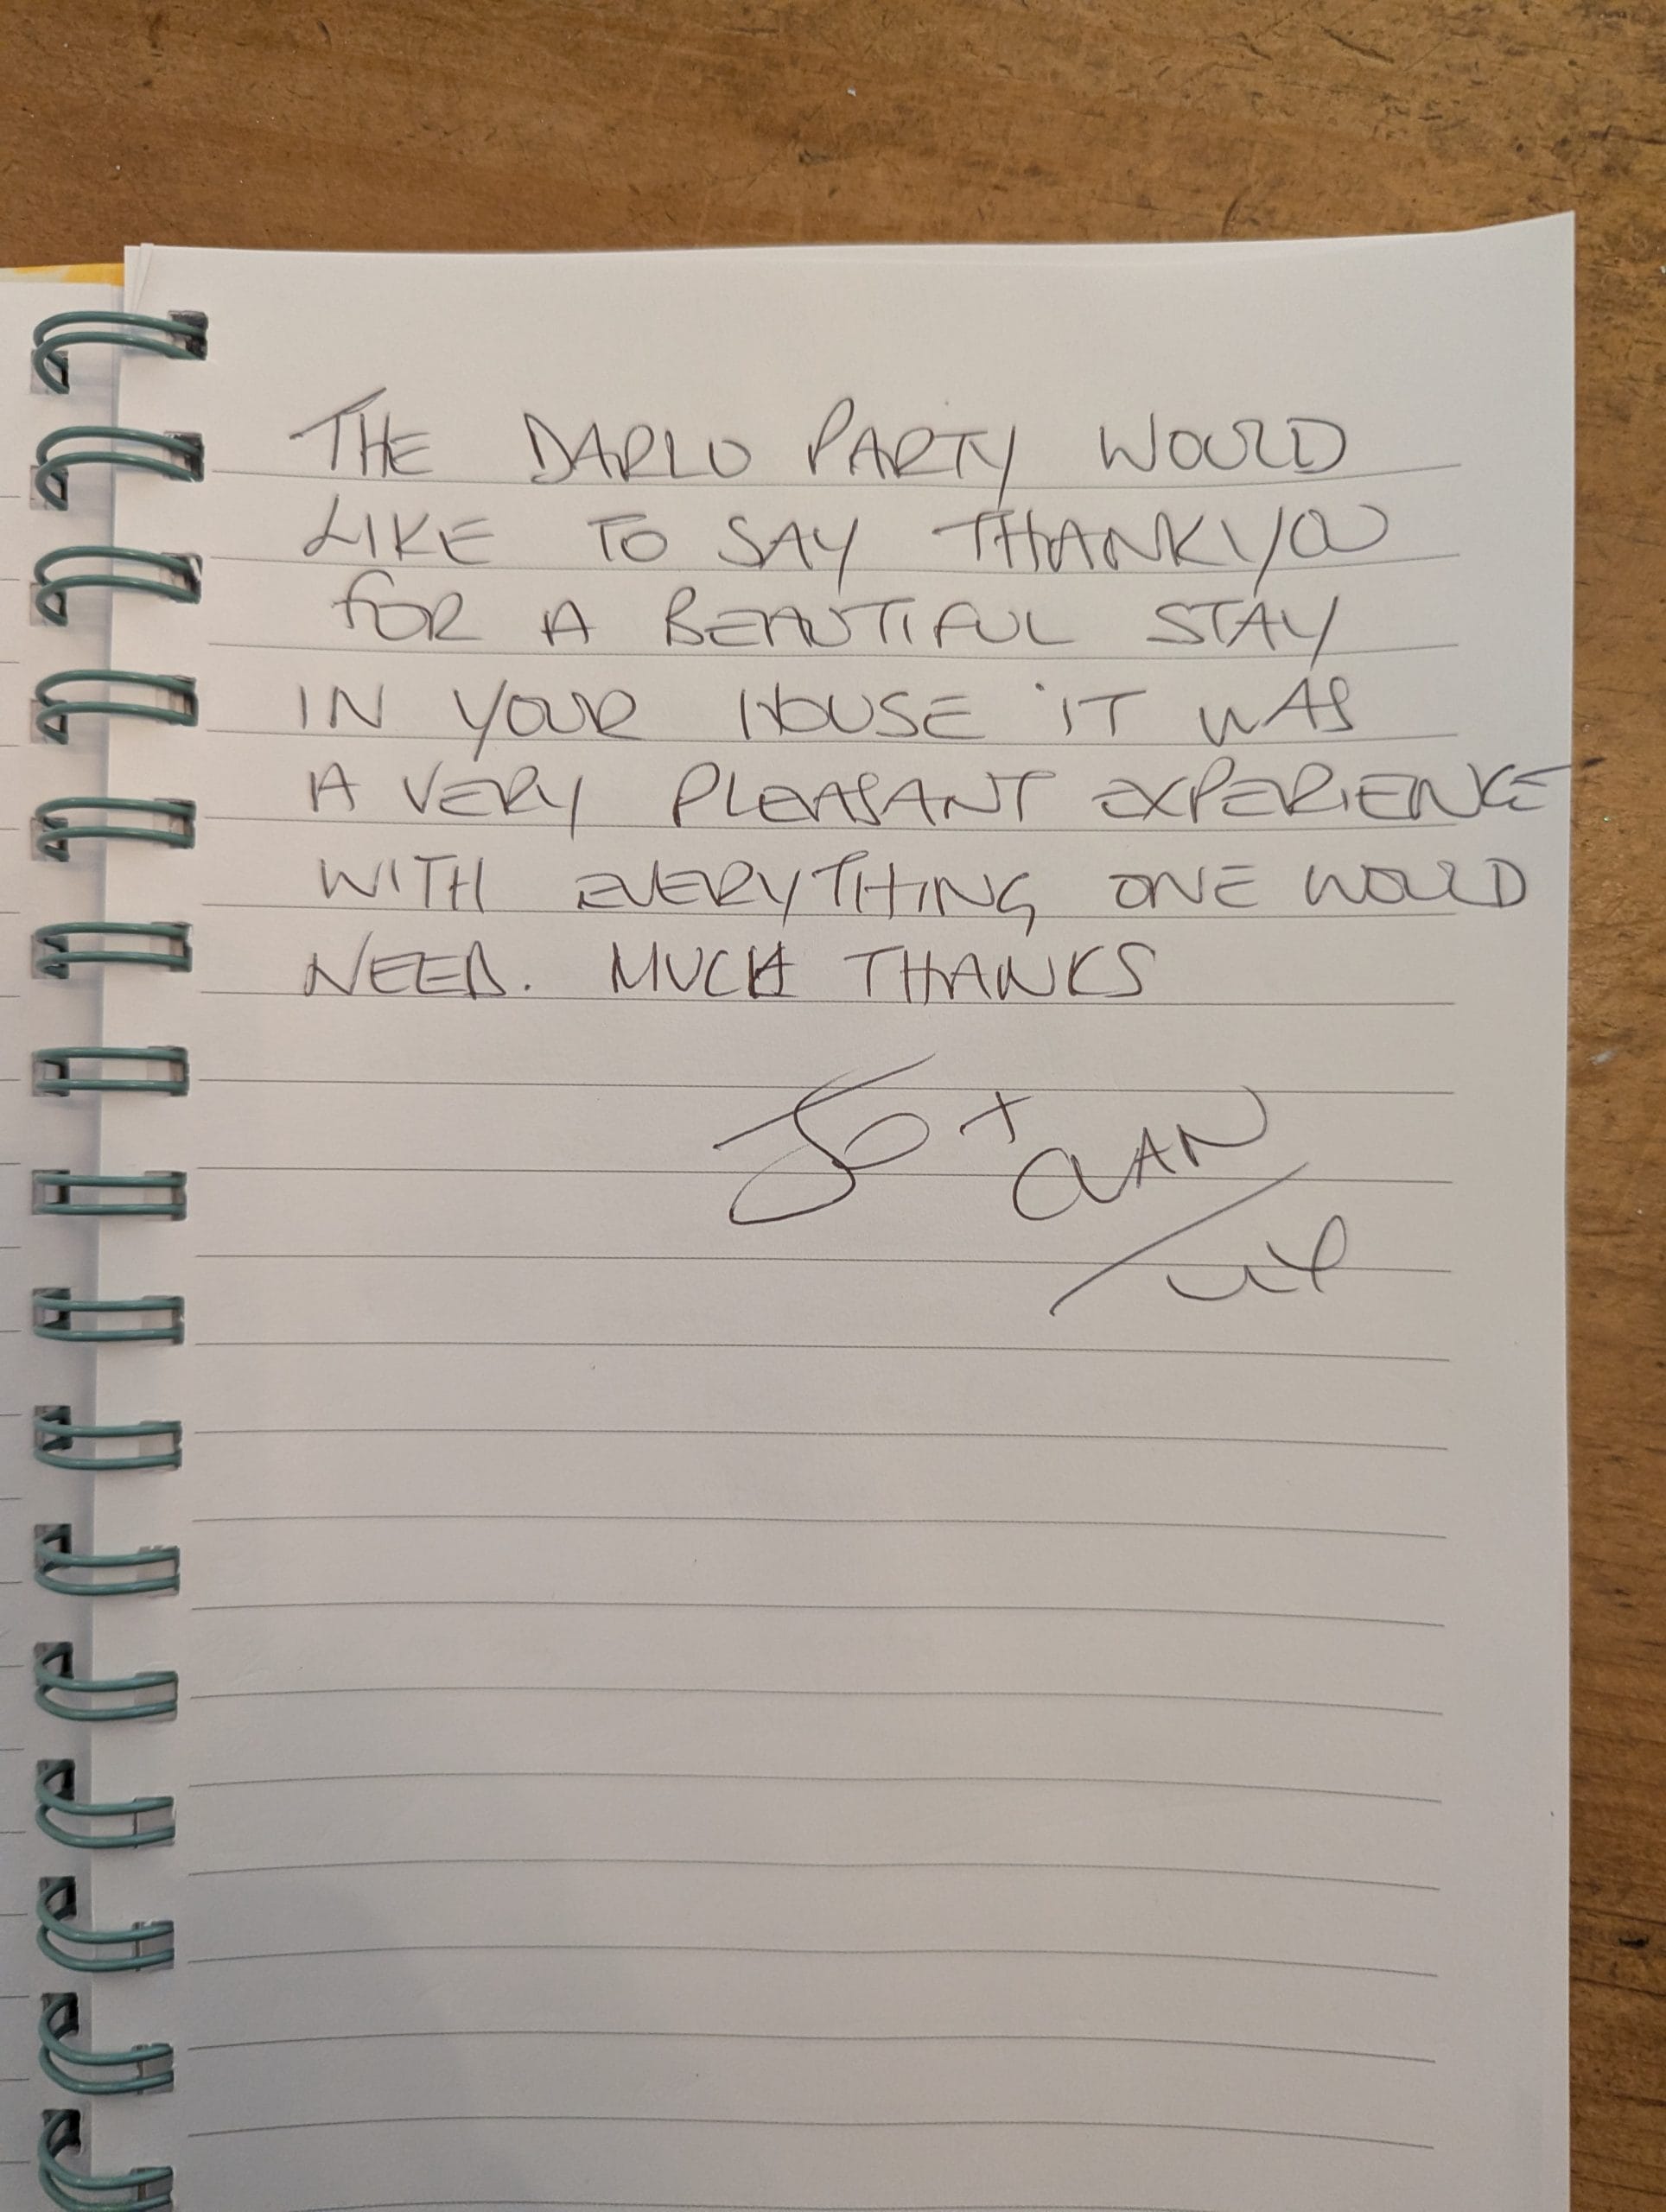 THE DARLO PARTY WOULD
LIKE TO SAY THANKYOU
FOR A BEAUTIFUL STAY
IN YOUR HOUSE IT WAS
A VERY PLEASANT EXPERIENCE
WITH EVERYTHING ONE WOULD
NEED. MUCH THANKS
Jo + CLAN